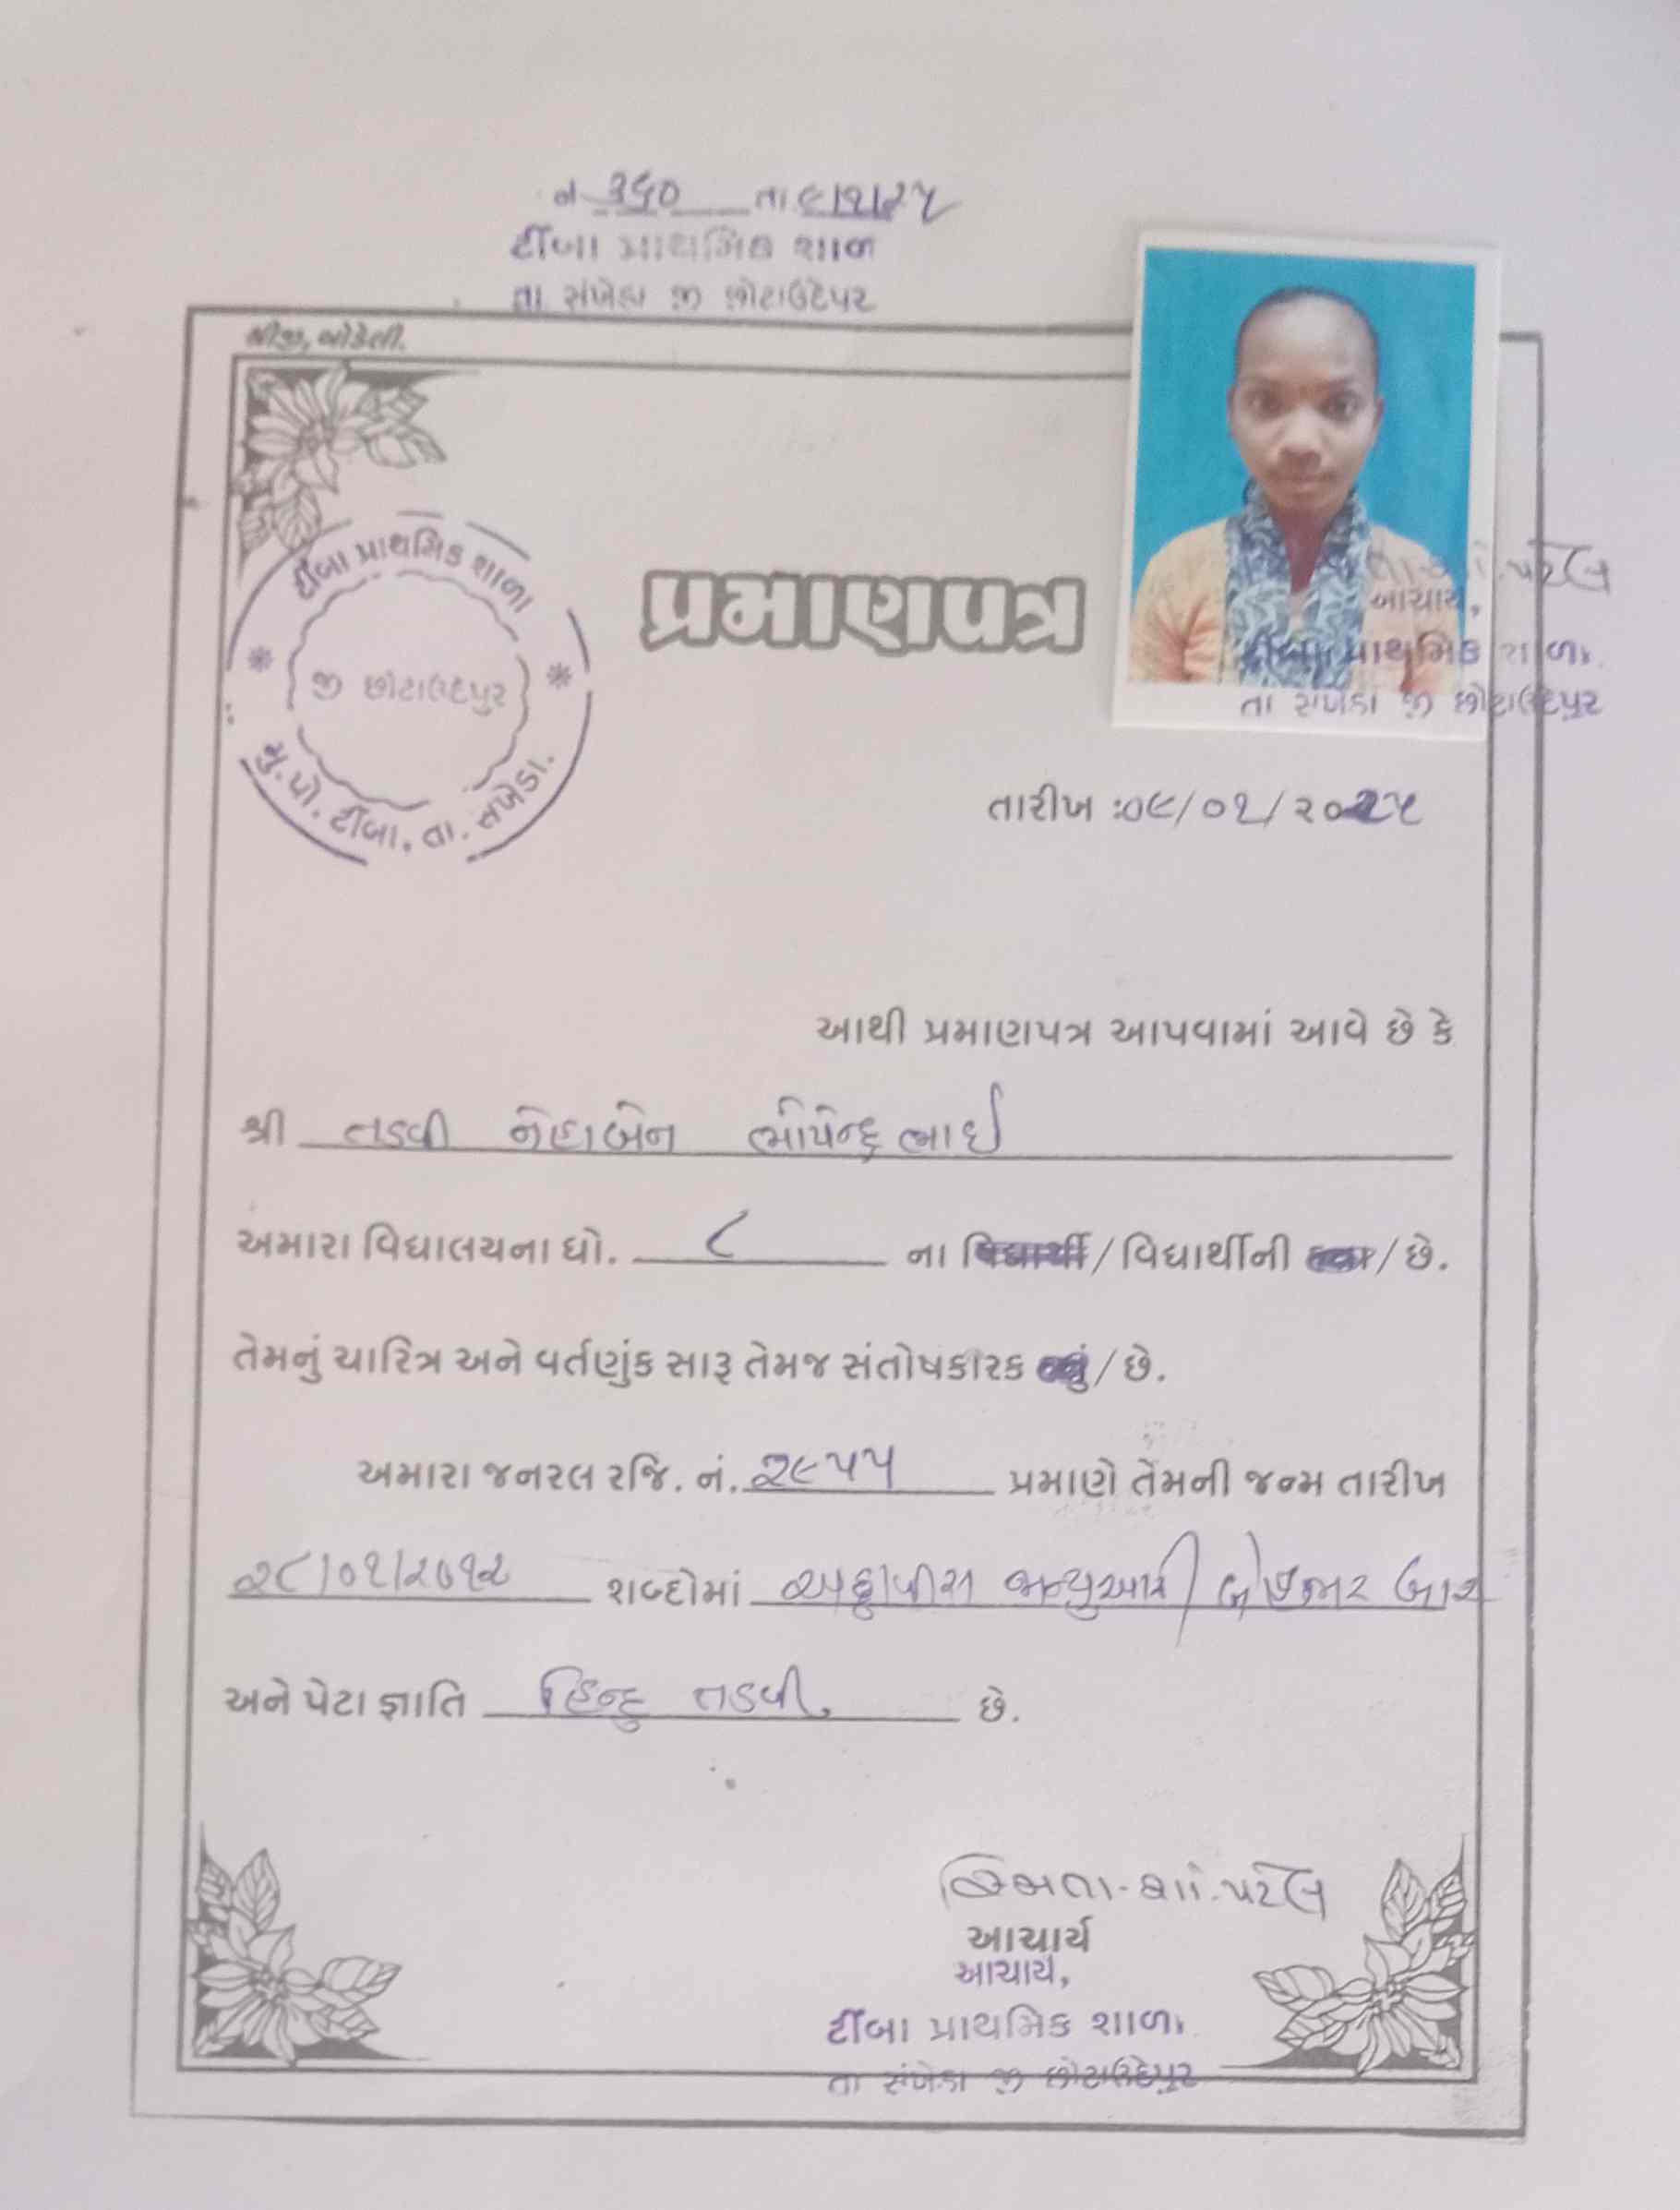 નં ૩૬૦ તા ૯/૧/૨૫
ટીંબા પ્રાથમિક શાળ
તા સંખેડા જી છોટાઉદેપુર
શ્રીજી, બોડેલી.
ટીંબા પ્રાથમિક શાળા
જી છોટાઉદેપુર
મુ. પો. ટીંબા, તા. સંખેડા.
પ્રમાણપત્ર
પટેલ
આચાર્ય,
ટીંબા પ્રાથમિક શાળા
તા સંખેડા જી છોટાઉદેપુર
તારીખ :૦૯/૦૧/૨૦૨૫
આથી પ્રમાણપત્ર આપવામાં આવે છે કે
શ્રી તડવી નેહાબેન ભોપેન્દ્રભાઈ
અમારા વિદ્યાલયના ધો. ૮ ના વિદ્યાર્થી / વિદ્યાર્થીની / છે.
તેમનું ચારિત્ર અને વર્તણુંક સારૂ તેમજ સંતોષકારક / છે.
અમારા જનરલ રજિ. નં. ૨૯૫૫ પ્રમાણે તેમની જન્મ તારીખ
૨૮/૦૧/૨૦૧૨ શબ્દોમાં અઠ્ઠાવીસ જાન્યુઆરી બે હજાર બાર
અને પેટા જ્ઞાતિ હિન્દુ તડવી. છે.
પટેલ
આચાર્ય
આચાર્ય,
ટીંબા પ્રાથમિક શાળા
તા સંખેડા જી છોટાઉદેપુર